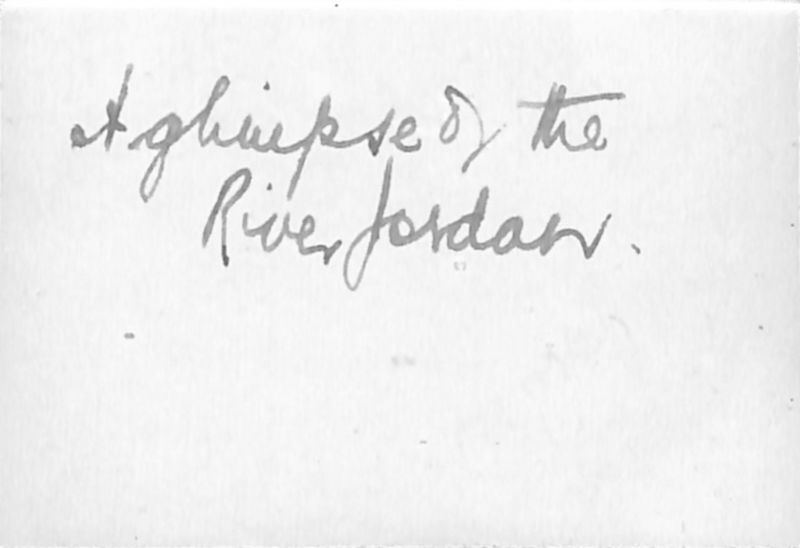 A glimpse of the
River Jordan.